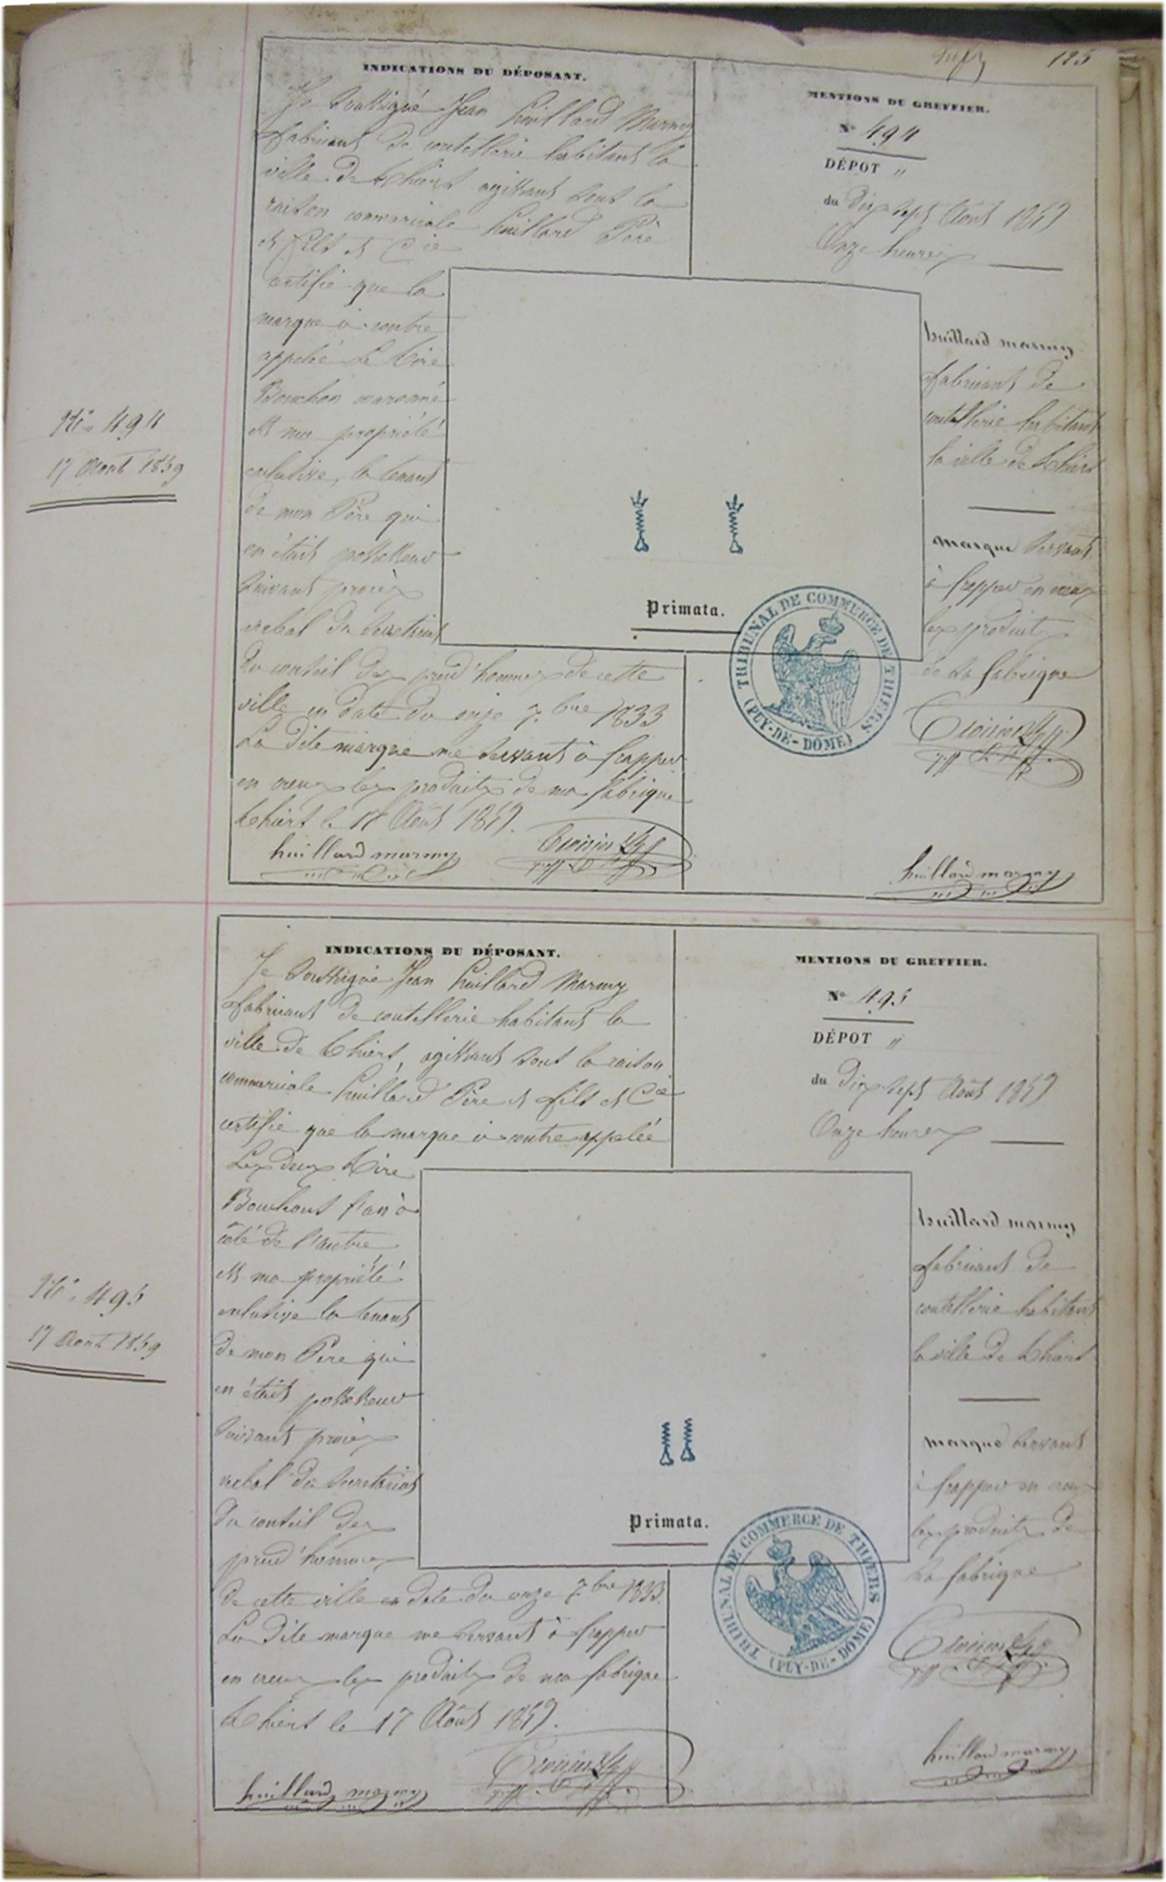 125
INDICATIONS DU DÉPOSANT.
Je soussigné Jean huillard Marmy
fabricant de coutellerie habitant la
ville de thiers agissant sous la
raison commerciale huillard Père
et fils et Cie
certifie que la
marque ci contre
appelée Le tire
Bouchon couronné
est ma propriété
exclusive, la tenant
de mon Père qui
en était possesseur
suivant procès
verbal du secrétariat
du conseil des prud'hommes de cette
ville en date du onze 7bre 1833
La dite marque me servant à frapper
en creux les produits de ma fabrique
thiers le 17 Août 1859.
huillard marmy
MENTIONS DU GREFFIER.
No 494
DÉPOT "
du Dix sept Août 1859
Onze heures
huillard marmy
fabricant de
coutellerie habitant
la ville de thiers
marque servant
à frapper en creux
les produits
de sa fabrique
huillard marmy
Primata.
TRIBUNAL DE COMMERCE DE THIERS
(PUY-DE-DÔME)
No. 494
17 Août 1859
INDICATIONS DU DÉPOSANT.
Je soussigné Jean huillard Marmy
fabricant de coutellerie habitant la
ville de thiers, agissant sous la raison
commerciale huillard Père et fils et Cie
certifie que la marque ci contre appelée
Les deux tire
Bouchons l'un à
côté de l'autre
est ma propriété
exclusive la tenant
de mon Père qui
en était possesseur
suivant procès
verbal du secrétariat
du conseil des
prud'hommes
de cette ville en date du onze 7bre 1833.
La dite marque me servant à frapper
en creux les produits de ma fabrique
thiers le 17 Août 1859.
huillard marmy
MENTIONS DU GREFFIER.
No 495
DÉPOT "
du Dix sept Août 1859
Onze heures
huillard marmy
fabricant de
coutellerie habitant
la ville de thiers
marque servant
à frapper en creux
les produits de
sa fabrique
huillard marmy
Primata.
TRIBUNAL DE COMMERCE DE THIERS
(PUY-DE-DÔME)
No. 495
17 Août 1859